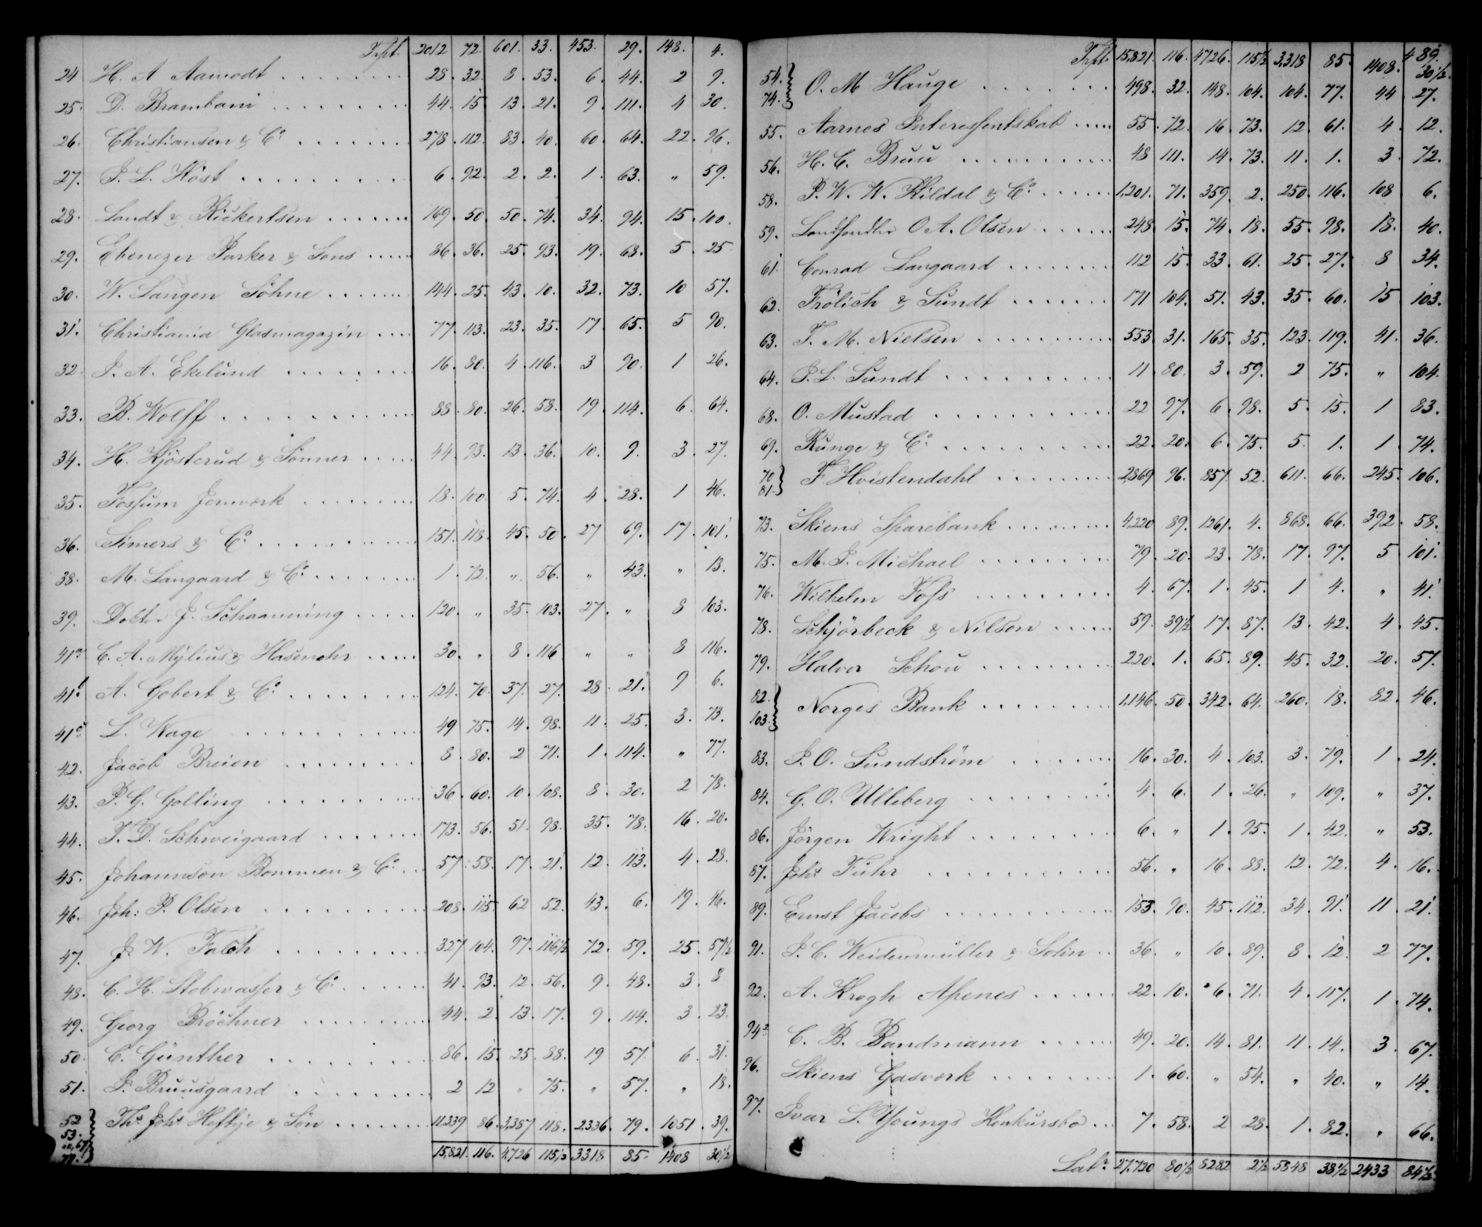 Trpt. 2012 72. 601. 33. 453. 29. 148. 4.
24 H. A Aamodt 28. 32. 8. 53. 6. 44. 2 9.
25. D. Brambani 44. 15. 13. 21. 9. 111. 4 30.
26. Christiansen & Co 278. 112. 83. 40. 60. 64. 22. 96.
27. P. L. Höst 6. 92. 2. 2. 1. 63. " 59.
28. Landt & Rickertsen 169. 50. 50. 74. 34. 94. 15. 100.
29. Ebenezer Parker & Sons 86. 36. 25. 93. 19. 68. 5. 25
30. W. Langen Söhne 144. 25. 43. 10. 32. 73. 10 57.
31. Christiania Glasmagazin 77. 113. 23. 35. 17. 65. 5 90.
32. J. A. Ekelund 16. 80. 4. 116. 3 90. 1 26.
33. B. Wolff 88. 80. 26. 58. 19. 114. 6. 64.
34. H. Kjösterud & Sönner 44. 93. 13. 36. 10. 9. 3. 27.
35. Fossum Jernværk 18. 100. 5. 74. 4. 28. 1 46.
36. Simers & Co 151. 118. 45. 50. 27 69. 17. 101.
38. M. Langaard & Co 1. 72. " 56. " 43. " 13.
39. Doktor J. Schaanning 120. " 35. 103. 27. " 8 103.
41a C. A. Mylius & Hasencler 30. " 8. 116 " " 8 116.
41b A. Gobert & Co 124. 70. 37. 27. 28. 21. 9 6.
41c L. Kage 49 75. 14. 98. 11. 25. 3. 73.
42. Jacob Breien 8. 80. 2 71. 1. 114. " 77.
43. P. G. Golling 36. 60. 10. 108. 8. 30. 2 78.
44. T. D. Schweigaard 173. 56. 51. 98. 35. 78. 16. 20.
45. Johannson Bommen & Co 57. 58. 17. 21. 12. 113. 4. 28.
46. Joh: P. Olsen 208. 115. 62 52. 43. 6. 19. 46.
47. J. W. Falch 327 104. 97. 116½ 72. 59. 25. 57½
48. C. H. Stobwasser & Co 41. 93. 12. 56. 9. 48. 3. 8
49. Georg Bröchner 44. 2. 13. 17. 9. 114. 3. 23.
50. C. Günther 86. 15. 25. 88. 19 57. 6. 31.
51. F. Bruusgaard 2 12 " 75. " 57. " 18.
52 53. Ths Johs Heftje & Søn 11.339 86. 3357 118. 2336. 79. 1051. 39.
15.821. 116. 4726 115½ 3318 85. 1408 30½
Trpt. 15.821. 116. 4726. 115½ 3,318 85. 1408. 30½.
54. 74. O. M Hauge 498. 32. 148. 104. 104. 77. 44 27.
55. Aarnes Interessentskab 55. 72. 16. 73. 12. 61. 4. 12.
56. H. C. Bruu 48 111. 14. 73. 11. 1. 3. 72.
58. P. W. W. Kildal & Co 1,201. 71. 359. 2. 250. 116. 108 6.
59. Landhandler O. A. Olsen 248. 15. 74. 18. 55. 98. 18. 40.
61. Conrad Langaard 112 15. 33. 61. 25. 27. 8 34.
62. Frölich & Sundt 171 104. 51. 43. 35. 60. 15 103.
63. T. M. Nielsen 553. 31. 165. 35. 123. 119. 41. 36.
64. P. L. Sundt 11 80. 3. 59. 2 75. " 104.
68. O. Mustad 22 97. 6. 98. 5. 15. 1 83.
69. Runge & Co 22. 20. 6. 75. 5. 1. 1. 74.
70 81. F. Hvistendahl 2869 96. 857. 52. 611. 66. 245. 106.
73. Skiens Sparebank 4.220 89. 1261. 4. 868. 66. 392. 58.
75. M. P. Michael 79. 20. 23. 78. 17. 97. 5 101.
76. Wilhelm Foss 4. 67. 1. 45. 1 4. " 41.
78. Schjörbeck & Nilsen 59. 39½ 17. 87. 13. 42. 4. 45.
79. Halvor Schou 220. 1. 65. 89. 45. 32. 20. 57.
82. 103. Norges Bank 1.146. 50. 342. 64. 260. 18. 82. 46.
83. P. O. Sundström 16. 30. 4. 103. 3. 79. 1. 24.
84. G. O. Ulleberg 4. 6. 1. 26. " 109. " 37.
86. Jörgen Wright 6. " 1. 95. 1. 42. " 53.
87. Johs Fuhr 56. " 16. 88. 12. 72. 4 16.
89. Ernst Jacobs 153. 90. 45. 112. 34. 91. 11. 21.
91. P. C. Weidenmüller & Sohn 36. " 10. 89. 8. 12. 2 77.
92. A. Krogh Apenes 22. 10. 6. 71. 4. 117. 1. 74.
94a C. B. Bandmann 49. 20. 14. 81. 11. 14. 3. 67.
96. Skiens Gasværk 1. 60. " 54. " 40. " 14.
97. Ivar S. Youngs Konkursbo 7. 58. 2 28. 1. 82. " 66.
Lats 27.720 80½ 8282 2½ 5848 38½ 2433 84½